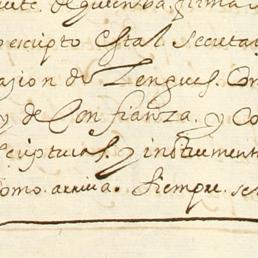 de quien ba firma
percupto Estal secreta
de Lengues. Con
y de Confianza. y Co
scripturas. y instrument
como arriva. Siempre. se